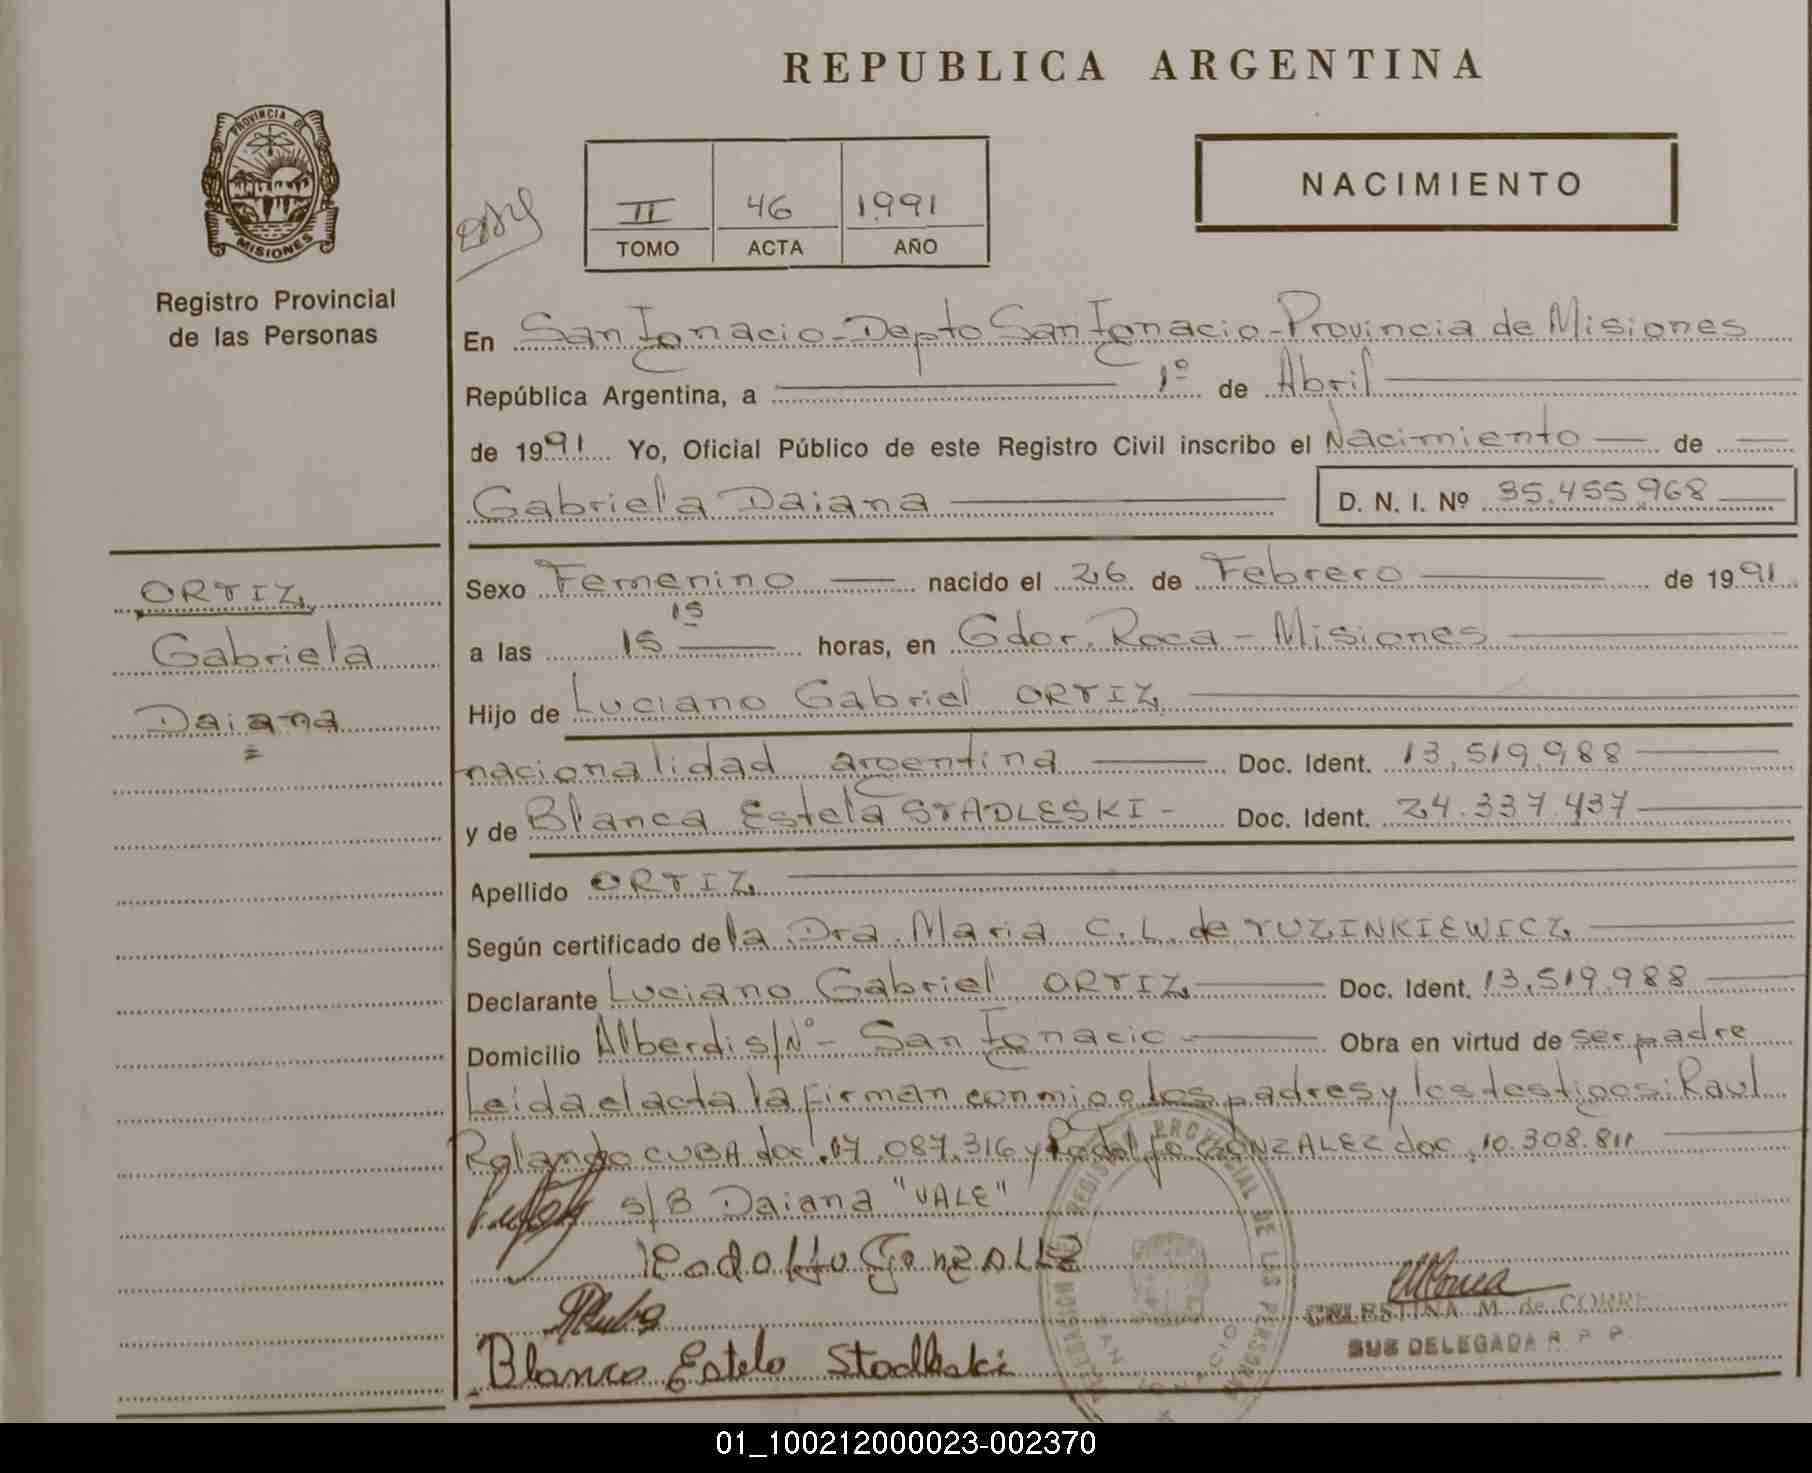 REPUBLICA ARGENTINA
PROVINCIA DE
MISIONES
Registro Provincial
de las Personas
II 46 1991
TOMO ACTA AÑO
NACIMIENTO
En San Ignacio - Depto San Ignacio - Provincia de Misiones
República Argentina, a 1º de Abril
de 1991 Yo, Oficial Público de este Registro Civil inscribo el Nacimiento de
Gabriela Daiana D. N. I. Nº 35.455.968
ORTIZ
Gabriela
Daiana
Sexo Femenino nacido el 26 de Febrero de 1991
a las 15 15 horas, en Gdor. Roca - Misiones
Hijo de Luciano Gabriel ORTIZ
nacionalidad argentina Doc. Ident. 13.519.988
y de Blanca Estela STADLESKI - Doc. Ident. 24.337.437
Apellido ORTIZ
Según certificado de la Dra. Maria C. L. de YUZINKIEWICZ
Declarante Luciano Gabriel ORTIZ Doc. Ident. 13.519.988
Domicilio Alberdi s/Nº - San Ignacio Obra en virtud de ser padre
Leida el acta la firman conmigo los padres y los testigos: Raul
Rolando CUBA doc. 17.087.316 y Rodolfo GONZALEZ doc. 10.308.811
s/B Daiana "VALE"
Rodolfo Gonzalez
Blanca Estela Stadleski
CELESTINA M. de CORRE
SUB DELEGADA R. P. P.
REGISTRO PROVINCIAL DE LAS PERSONAS
01_100212000023-002370